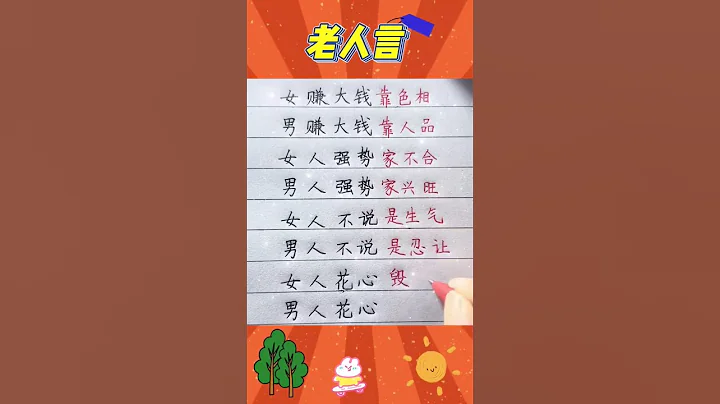 老人言
女赚大钱靠色相
男赚大钱靠人品
女人强势家不合
男人强势家兴旺
女人不说是生气
男人不说是忍让
女人花心毁
男人花心